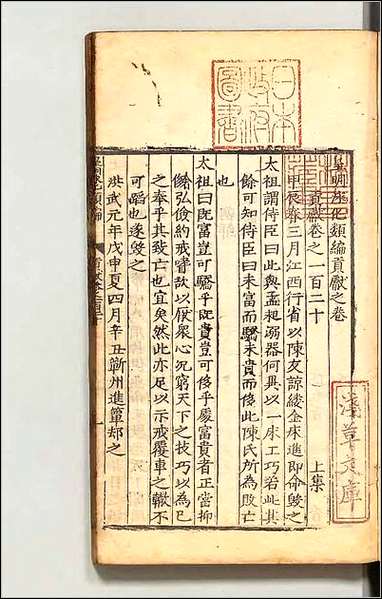 皇明泳化類編貢獻之卷
貢獻卷之一百二十
上集
甲辰春三月江西行省以陳友諒縷金床進即命毀之
太祖謂侍臣曰此與孟昶溺器何異以一床工巧若此其
餘可知侍臣曰未富而驕未貴而侈此陳氏所為敗亡
也
太祖曰既富豈可驕乎既貴豈可侈乎處富貴者正當抑
僚弘儉約戒奢欲以厭衆心况窮天下之技巧以為已
之奉乎其致亡也宜矣然此亦足以示戒覆車之轍不
可蹈也遂毀之
洪武元年戊申夏四月辛丑蘄州進簟却之
日本
政府
圖書
淺草文庫